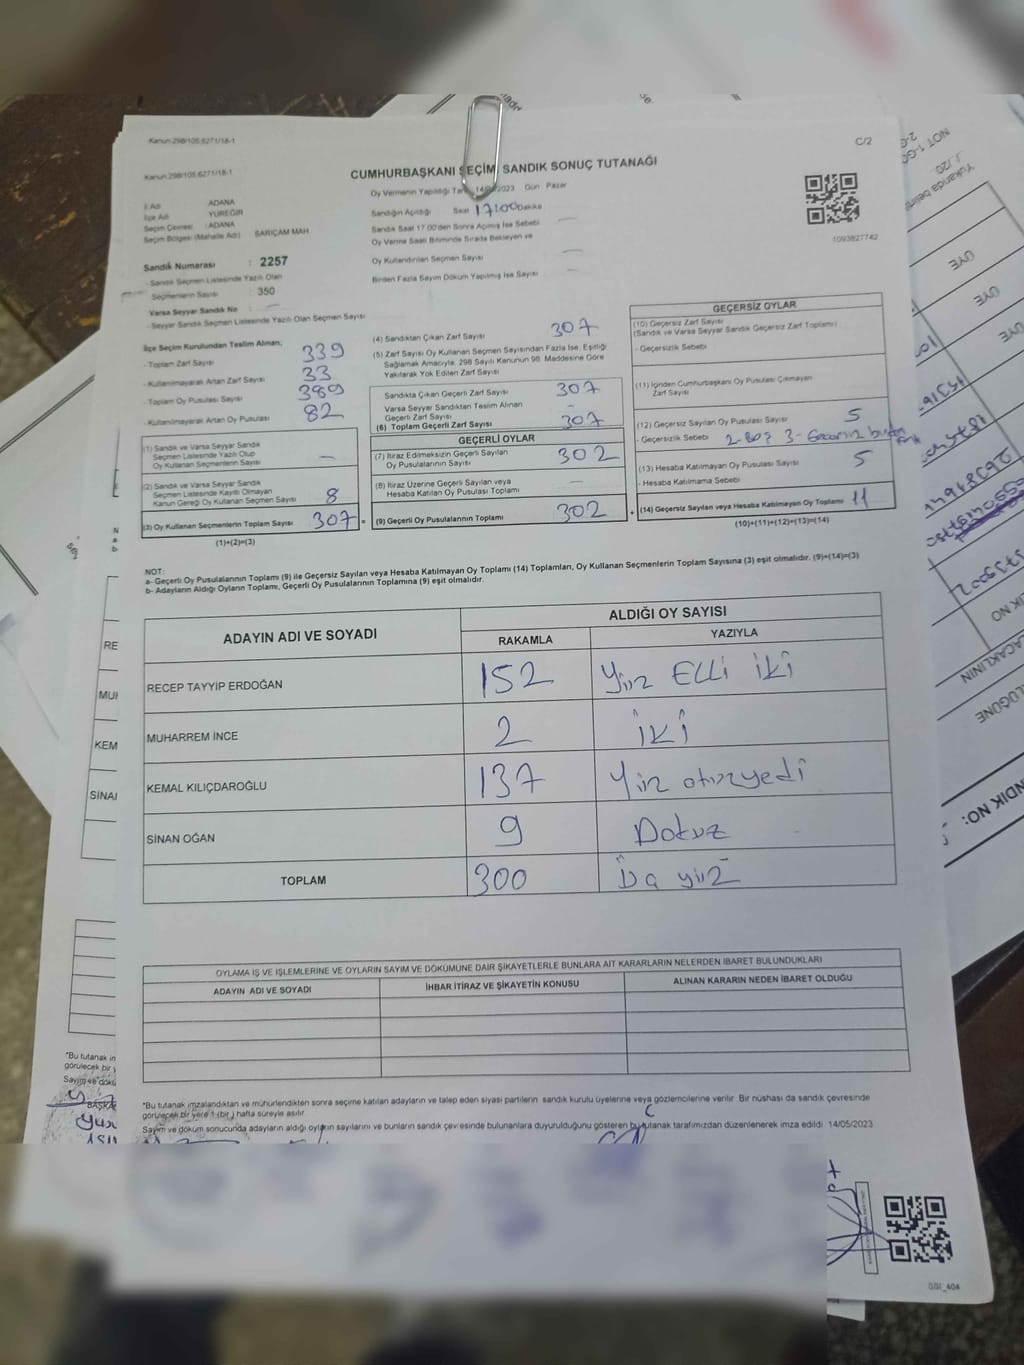 Kanun 298/105.6271/18-1
C/2
Kanun 298/105.6271/18-1
CUMHURBAŞKANI SEÇİMİ SANDIK SONUÇ TUTANAĞI
Oy Vermenin Yapıldığı Tarih 14/05/2023 Gün Pazar
İl Adı ADANA
İlçe Adı YÜREĞİR
Seçim Çevresi : ADANA
Seçim Bölgesi (Mahalle Adı) SARIÇAM MAH
Sandığın Açıldığı Saat 17.00 Dakika
Sandık Saat 17.00'den Sonra Açılmış İse Sebebi
Oy Verme Saati Bitiminde Sırada Bekleyen ve
Oy Kullandırılan Seçmen Sayısı
Birden Fazla Sayım Döküm Yapılmış İse Sayısı
1093827742
Sandık Numarası : 2257
- Sandık Seçmen Listesinde Yazılı Olan
Seçmenlerin Sayısı : 350
Varsa Seyyar Sandık No
- Seyyar Sandık Seçmen Listesinde Yazılı Olan Seçmen Sayısı
İlçe Seçim Kurulundan Teslim Alınan;
- Toplam Zarf Sayısı 339
- Kullanılmayarak Artan Zarf Sayısı 33
- Toplam Oy Pusulası Sayısı 389
- Kullanılmayarak Artan Oy Pusulası 82
(1) Sandık ve Varsa Seyyar Sandık
Seçmen Listesinde Yazılı Olup
Oy Kullanan Seçmenlerin Sayısı –
(2) Sandık ve Varsa Seyyar Sandık
Seçmen Listesinde Kayıtlı Olmayan
Kanun Gereği Oy Kullanan Seçmen Sayısı 8
(3) Oy Kullanan Seçmenlerin Toplam Sayısı 307
(1)+(2)=(3)
(4) Sandıktan Çıkan Zarf Sayısı 307
(5) Zarf Sayısı Oy Kullanan Seçmen Sayısından Fazla İse, Eşitliği
Sağlamak Amacıyla; 298 Sayılı Kanunun 98. Maddesine Göre
Yakılarak Yok Edilen Zarf Sayısı
Sandıkta Çıkan Geçerli Zarf Sayısı 307
Varsa Seyyar Sandıktan Teslim Alınan
Geçerli Zarf Sayısı –
(6) Toplam Geçerli Zarf Sayısı 307
GEÇERLİ OYLAR
(7) İtiraz Edilmeksizin Geçerli Sayılan
Oy Pusulalarının Sayısı 302
(8) İtiraz Üzerine Geçerli Sayılan veya
Hesaba Katılan Oy Pusulası Toplamı –
= (9) Geçerli Oy Pusulalarının Toplamı 302
GEÇERSİZ OYLAR
(10) Geçersiz Zarf Sayısı
(Sandık ve Varsa Seyyar Sandık Geçersiz Zarf Toplamı)
- Geçersizlik Sebebi
(11) İçinden Cumhurbaşkanı Oy Pusulası Çıkmayan
Zarf Sayısı
(12) Geçersiz Sayılan Oy Pusulası Sayısı 5
- Geçersizlik Sebebi
(13) Hesaba Katılmayan Oy Pusulası Sayısı 5
- Hesaba Katılmama Sebebi
+ (14) Geçersiz Sayılan veya Hesaba Katılmayan Oy Toplamı 11
(10)+(11)+(12)+(13)=(14)
NOT:
a- Geçerli Oy Pusulalarının Toplamı (9) ile Geçersiz Sayılan veya Hesaba Katılmayan Oy Toplamı (14) Toplamları, Oy Kullanan Seçmenlerin Toplam Sayısına (3) eşit olmalıdır. (9)+(14)=(3)
b- Adayların Aldığı Oyların Toplamı, Geçerli Oy Pusulalarının Toplamına (9) eşit olmalıdır.
ADAYIN ADI VE SOYADI
ALDIĞI OY SAYISI
RAKAMLA YAZIYLA
RECEP TAYYİP ERDOĞAN 152 Yüz Elli iki
MUHARREM İNCE 2 iki
KEMAL KILIÇDAROĞLU 137 Yüz otuzyedi
SİNAN OĞAN 9 Dokuz
TOPLAM 300
OYLAMA İŞ VE İŞLEMLERİNE VE OYLARIN SAYIM VE DÖKÜMÜNE DAİR ŞİKAYETLERLE BUNLARA AİT KARARLARIN NELERDEN İBARET BULUNDUKLARI
ADAYIN ADI VE SOYADI İHBAR İTİRAZ VE ŞİKAYETİN KONUSU ALINAN KARARIN NEDEN İBARET OLDUĞU
*Bu tutanak imzalandıktan ve mühürlendikten sonra seçime katılan adayların ve talep eden siyasi partilerin sandık kurulu üyelerine veya gözlemcilerine verilir. Bir nüshası da sandık çevresinde
görülecek bir yere 1 (bir) hafta süreyle asılır.
Sayım ve döküm sonucunda adayların aldığı oyların sayılarını ve bunların sandık çevresinde bulunanlara duyurulduğunu gösteren bu tutanak tarafımızdan düzenlenerek imza edildi. 14/05/2023
RE
MUH
KEM
SİNAN
*Bu tutanak im
görülecek bir y
Sayım ve dökü
BAŞKA
SSI_404
NOT 1-
ÜYE
ÜYE
ÜYE
NDIK NO: